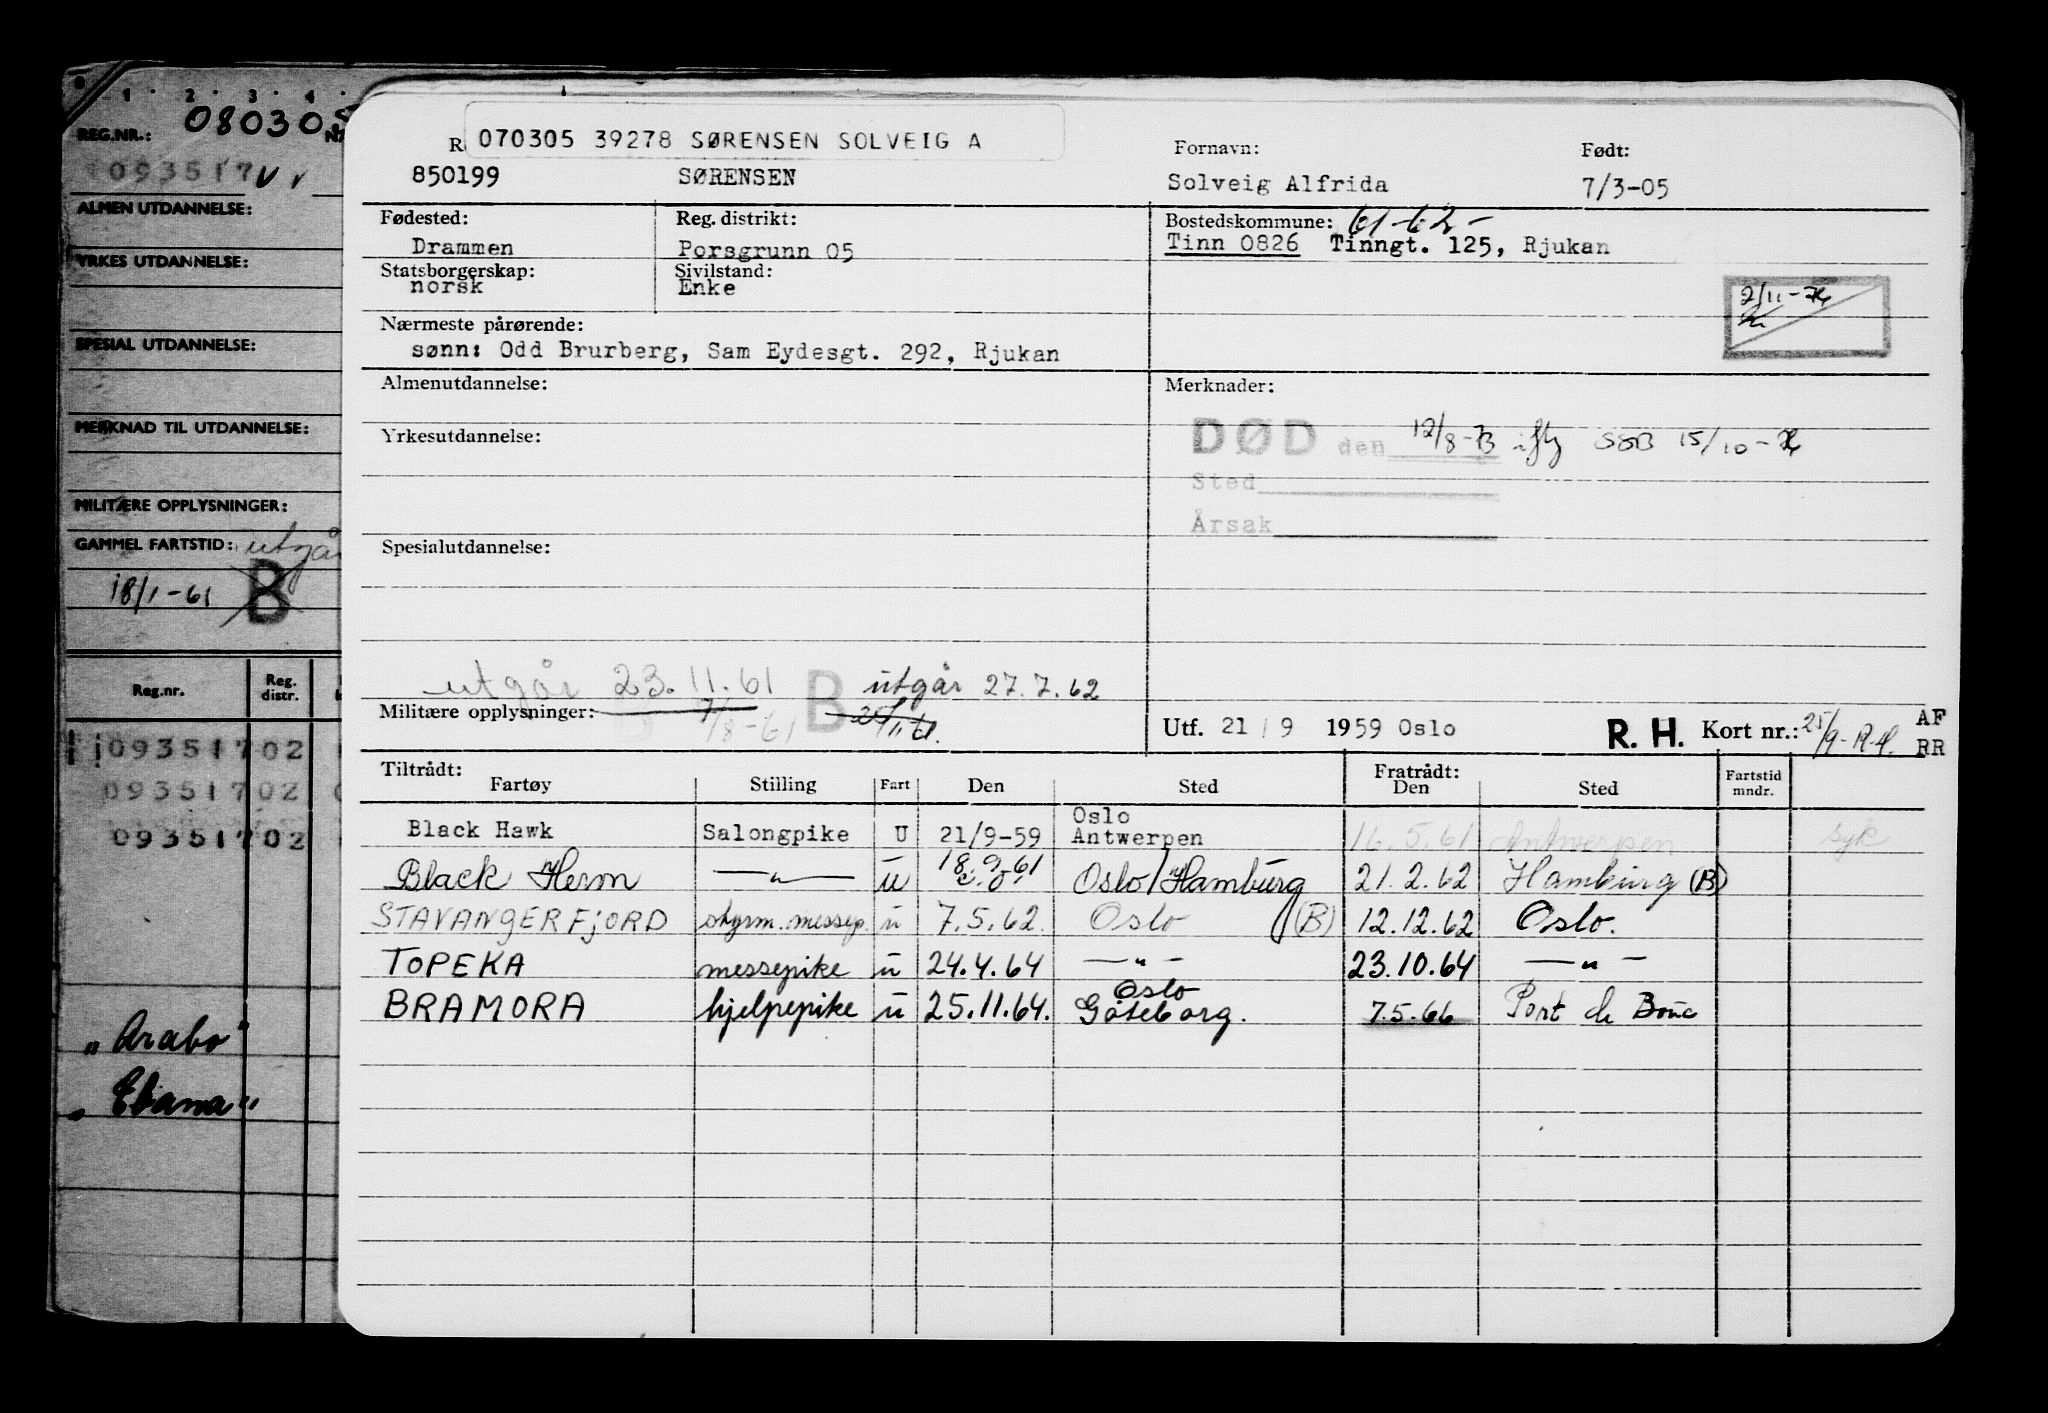 1 . 2 . 3 . 4 .
REG.NR.: 080305
093517
ALMEN UTDANNELSE:
YRKES UTDANNELSE:
SPESIAL UTDANNELSE:
MERKNAD TIL UTDANNELSE:
MILITÆRE OPPLYSNINGER:
GAMMEL FARTSTID: utgår
18/1-61 B
Reg.nr. Reg. distr.
09351702
09351702
09351702
"Arabo"
070305 39278 SØRENSEN SOLVEIG A
Fornavn: Født:
850199 SØRENSEN Solveig Alfrida 7/3-05
Fødested: Reg. distrikt: Bostedskommune: 61-62-
Drammen Porsgrunn 05 Tinn 0826 Tinngt. 125, Rjukan
Statsborgerskap: Sivilstand:
norsk Enke
2/11-74
Nærmeste pårørende:
sønn: Odd Brurberg, Sam Eydesgt. 292, Rjukan
Almenutdannelse: Merknader:
DØD den 12/8-73 iflg SSB 15/10-74
Yrkesutdannelse:
Sted
Årsak
Spesialutdannelse:
utgår 23.11.61 B utgår 27.7.62
Militære opplysninger: 7/8-61
Utf. 21/9 1959 Oslo R. H. Kort nr.: 25/9-R.H. AF RR
Tiltrådt: Fratrådt:
Fartøy Stilling Fart Den Sted Den Sted Fartstid mndr.
Black Hawk Salongpike U 21/9-59 Oslo Antwerpen 16.5.61 Antwerpen syk
Black Heron —"— u 18.9.61 Oslo/Hamburg 21.2.62 Hamburg (B)
STAVANGERFJORD skyrm.messep. u 7.5.62 Oslo (B) 12.12.62 Oslo.
TOPEKA messepike u 24.4.64 —"— 23.10.64 —"—
BRAMORA hjelpepike u 25.11.64. Oslo Göteborg. 7.5.66 Port de Bouc